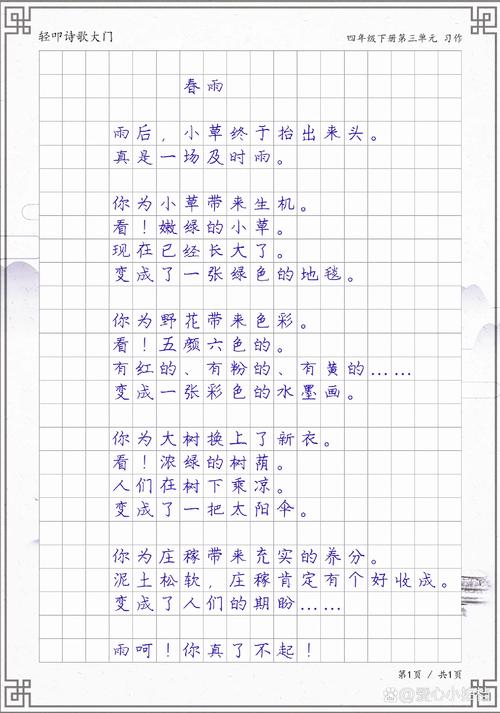 轻叩诗歌大门
四年级下册第三单元 习作
春雨
雨后，小草终于抬出来头。
真是一场及时雨。
你为小草带来生机。
看！嫩绿的小草。
现在已经长大了。
变成了一张绿色的地毯。
你为野花带来色彩。
看！五颜六色的。
有红的、有粉的、有黄的……
变成一张彩色的水墨画。
你为大树换上了新衣。
看！浓绿的树荫。
人们在树下乘凉。
变成了一把太阳伞。
你为庄稼带来充实的养分。
泥土松软，庄稼肯定有个好收成。
变成了人们的期盼……
雨呵！你真了不起！
第1页 / 共1页